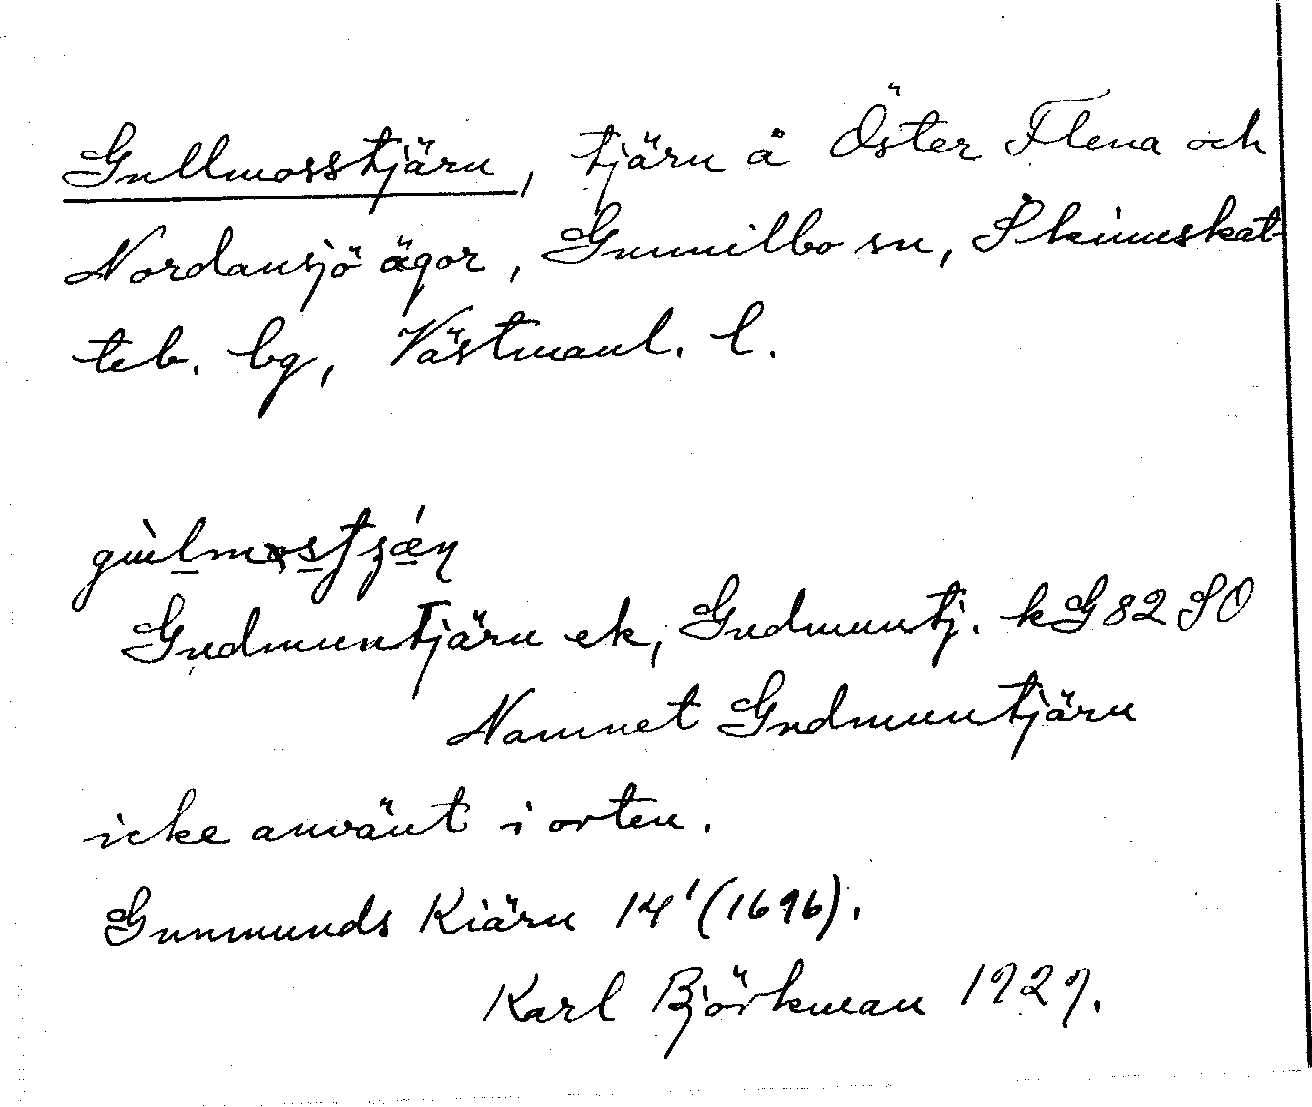 Gullmosstjärn, tjärn å Öster Flena och
Nordansjö ägor, Gunnilbo sn, Skinnskat
teb. bg, Västmanl. l.
Gudmuntjärn ek, Gudmuntj. kG 82 SO
Namnet Gudmuntjärn
icke använt i orten.
Gunmunds Kiärn 14' (1696).
Karl Björkman 1929.